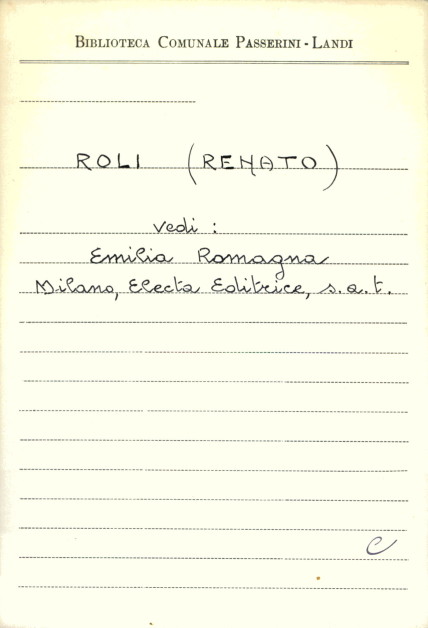 BIBLIOTECA COMUNALE PASSERINI - LANDI
ROLI (RENATO)
vedi :
Emilia Romagna
Milano, Electa Editrice, s.a.t.
C